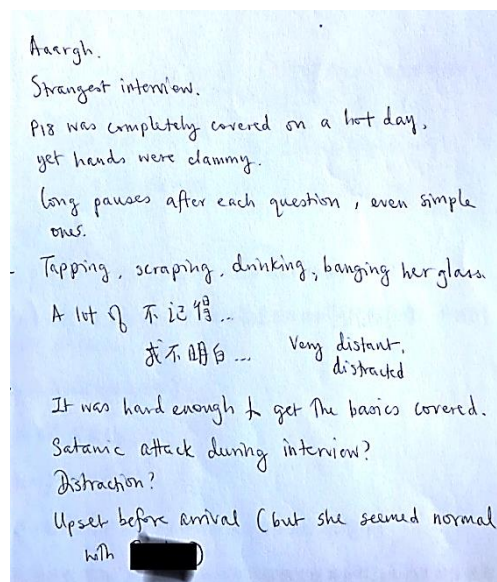 Aaargh.
Strangest interview.
P18 was completely covered on a hot day,
yet hands were clammy.
Long pauses after each question, even simple
ones.
Tapping, scraping, drinking, banging her glass.
A lot of 不记得...
我不明白... Very distant,
distracted
It was hard enough to get the basics covered.
Satanic attack during interview?
Distraction?
Upset before arrival (but she seemed normal
with )